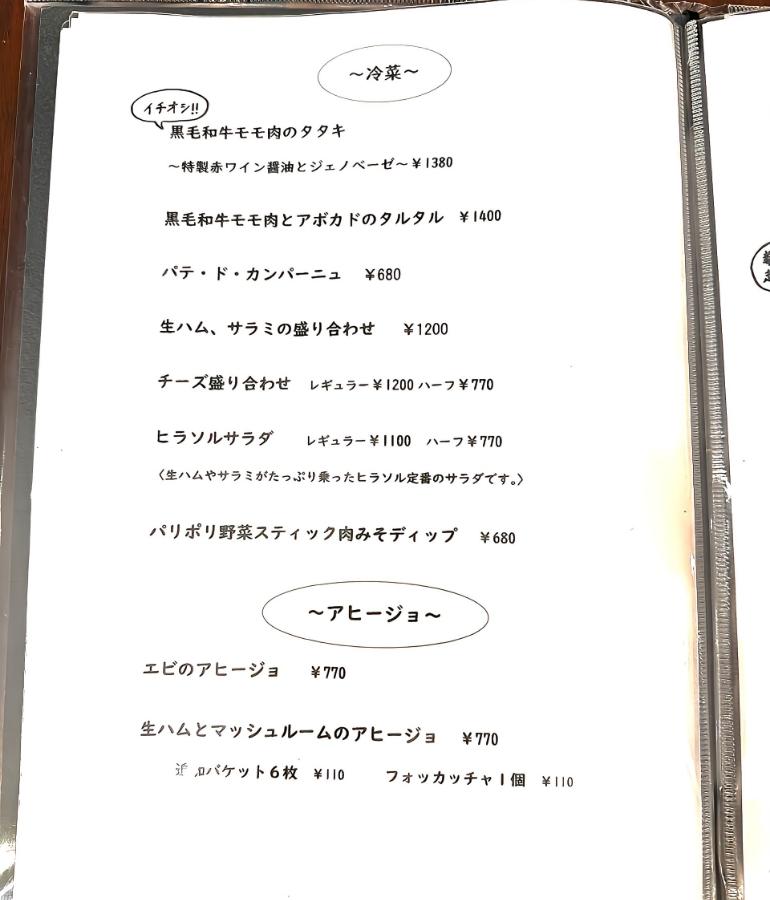 ～冷菜～
イチオシ!!
黒毛和牛モモ肉のタタキ
～特製赤ワイン醤油とジェノベーゼ～￥1380
黒毛和牛モモ肉とアボカドのタルタル ￥1400
パテ・ド・カンパーニュ ￥680
生ハム、サラミの盛り合わせ ￥1200
チーズ盛り合わせ レギュラー￥1200 ハーフ￥770
ヒラソルサラダ レギュラー￥1100 ハーフ￥770
〈生ハムやサラミがたっぷり乗ったヒラソル定番のサラダです。〉
パリポリ野菜スティック肉みそディップ ￥680
～アヒージョ～
エビのアヒージョ ￥770
生ハムとマッシュルームのアヒージョ ￥770
バケット6枚 ￥110 フォッカッチャ1個 ￥110